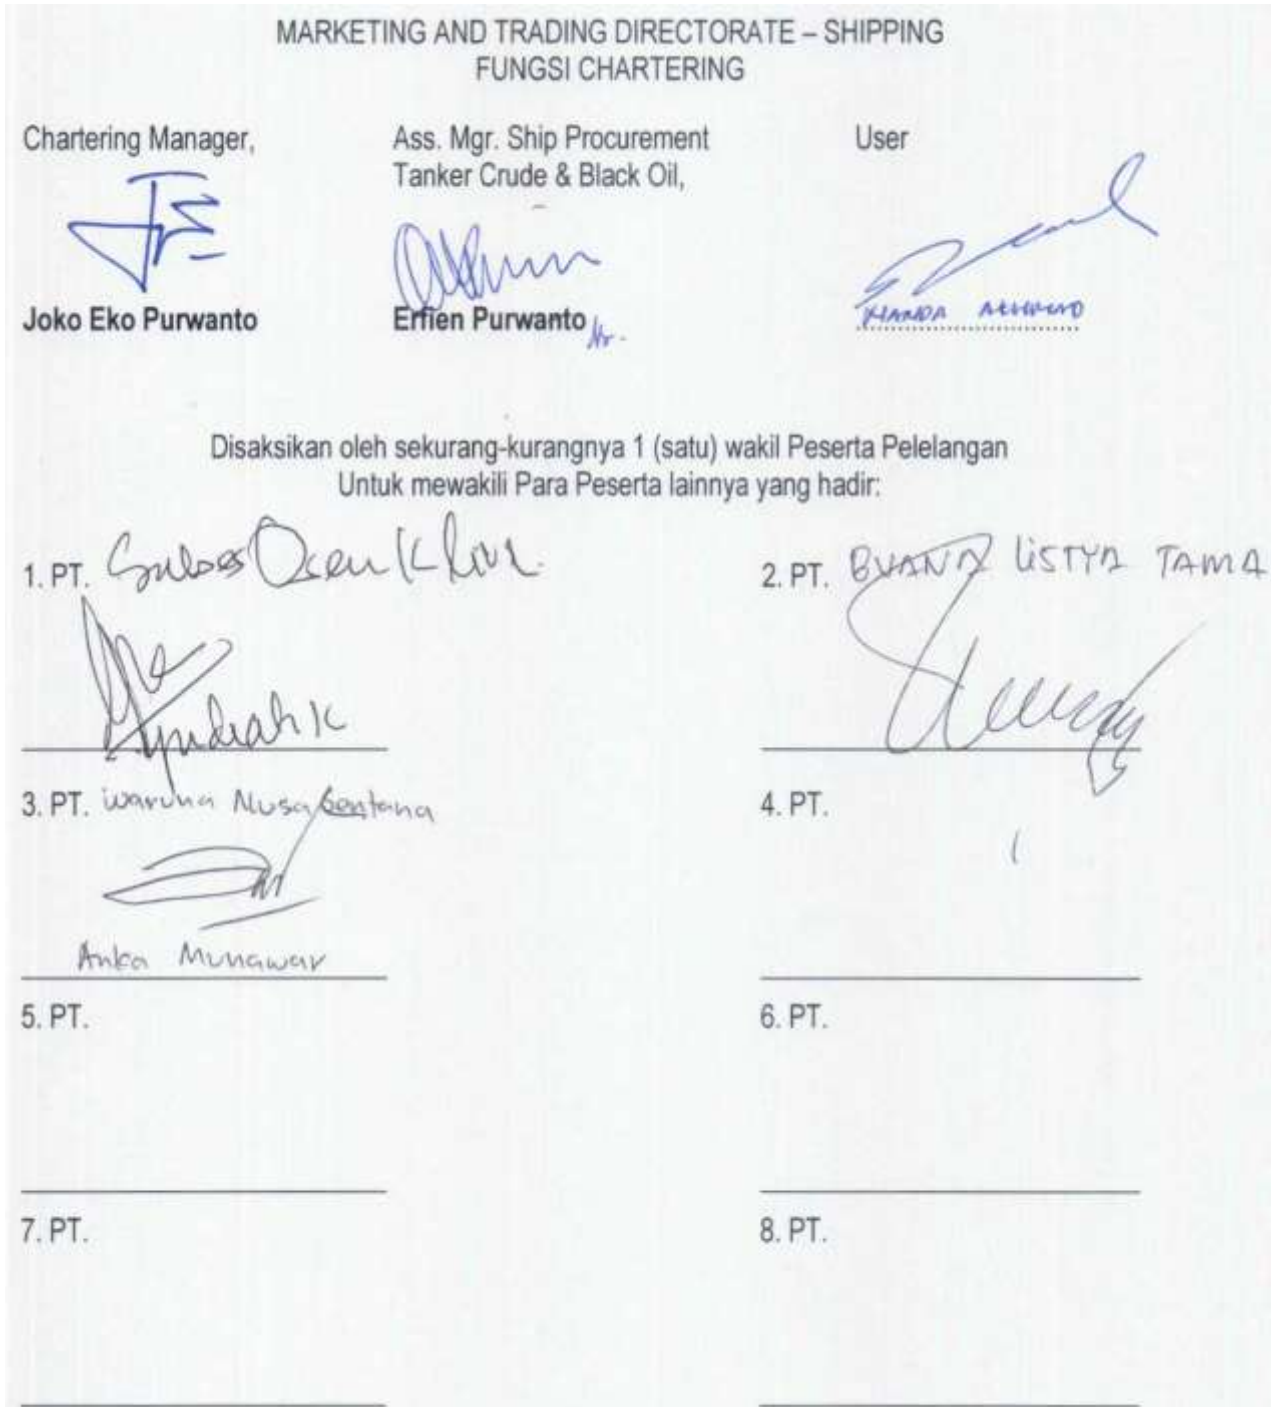 MARKETING AND TRADING DIRECTORATE – SHIPPING
FUNGSI CHARTERING
Chartering Manager,
Ass. Mgr. Ship Procurement
Tanker Crude & Black Oil,
User
Joko Eko Purwanto
Erfien Purwanto
Disaksikan oleh sekurang-kurangnya 1 (satu) wakil Peserta Pelelangan
Untuk mewakili Para Peserta lainnya yang hadir:
1. PT. Sukses Osean
2. PT. BUANA LISTYA TAMA
3. PT. Waruna Nusa Sentana
4. PT.
Anka Munawar
5. PT.
6. PT.
7. PT.
8. PT.